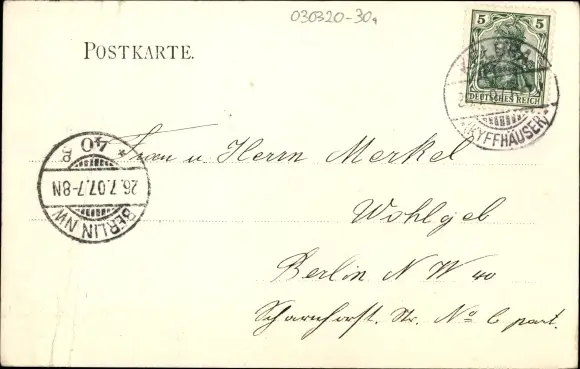 030320-30
POSTKARTE.
5 5
DEUTSCHES REICH
(KYFFHÄUSER)
BERLIN NW
26.7.07.7-8N
* 40
Frau u. Herrn Merkel
Wohlgeb
Berlin N W 40
Scharnhorst. Str. No 6 part.